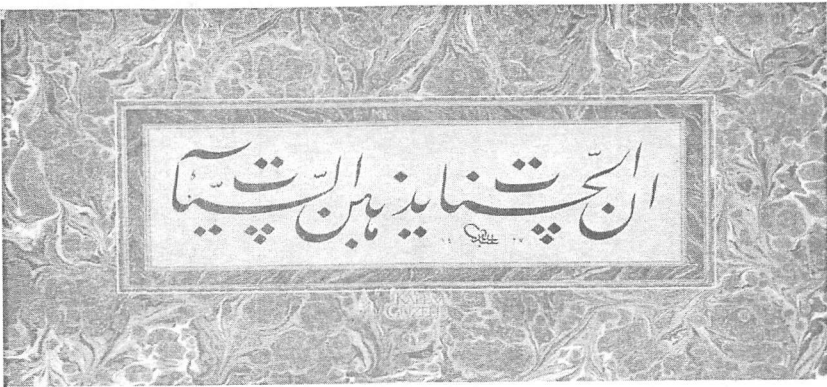 ان الحسنات يذهبن السيّئات
KALEM
GÜZELİ